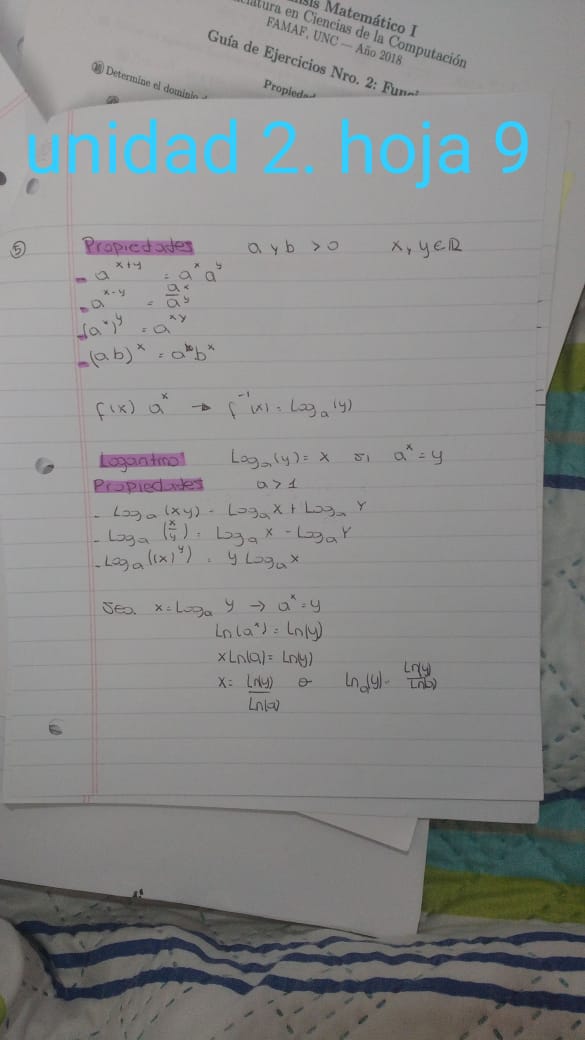 Análisis Matemático I
Licenciatura en Ciencias de la Computación
FAMAF, UNC — Año 2018
Guía de Ejercicios Nro. 2:
Determine el dominio
unidad 2. hoja 9
⑤ Propiedades a y b > 0 x, y ∈ ℝ
- a^(x+y) = a^x a^y
- a^(x-y) = a^x/a^y
- (a^x)^y = a^(xy)
- (ab)^x = a^x b^x
f(x) a^x → f^(-1)(x) = Log_a(y)
Logaritmo Log_a(y) = x si a^x = y
Propiedades a > 1
- Log_a(xy) = Log_a x + Log_a y
- Log_a(x/y) = Log_a x - Log_a y
- Log_a((x)^y) = y Log_a x
Sea x = Log_a y → a^x = y
Ln(a^x) = Ln(y)
x Ln(a) = Ln(y)
x = Ln(y)/Ln(a) o Ln_a(y) = Ln(y)/Ln(a)